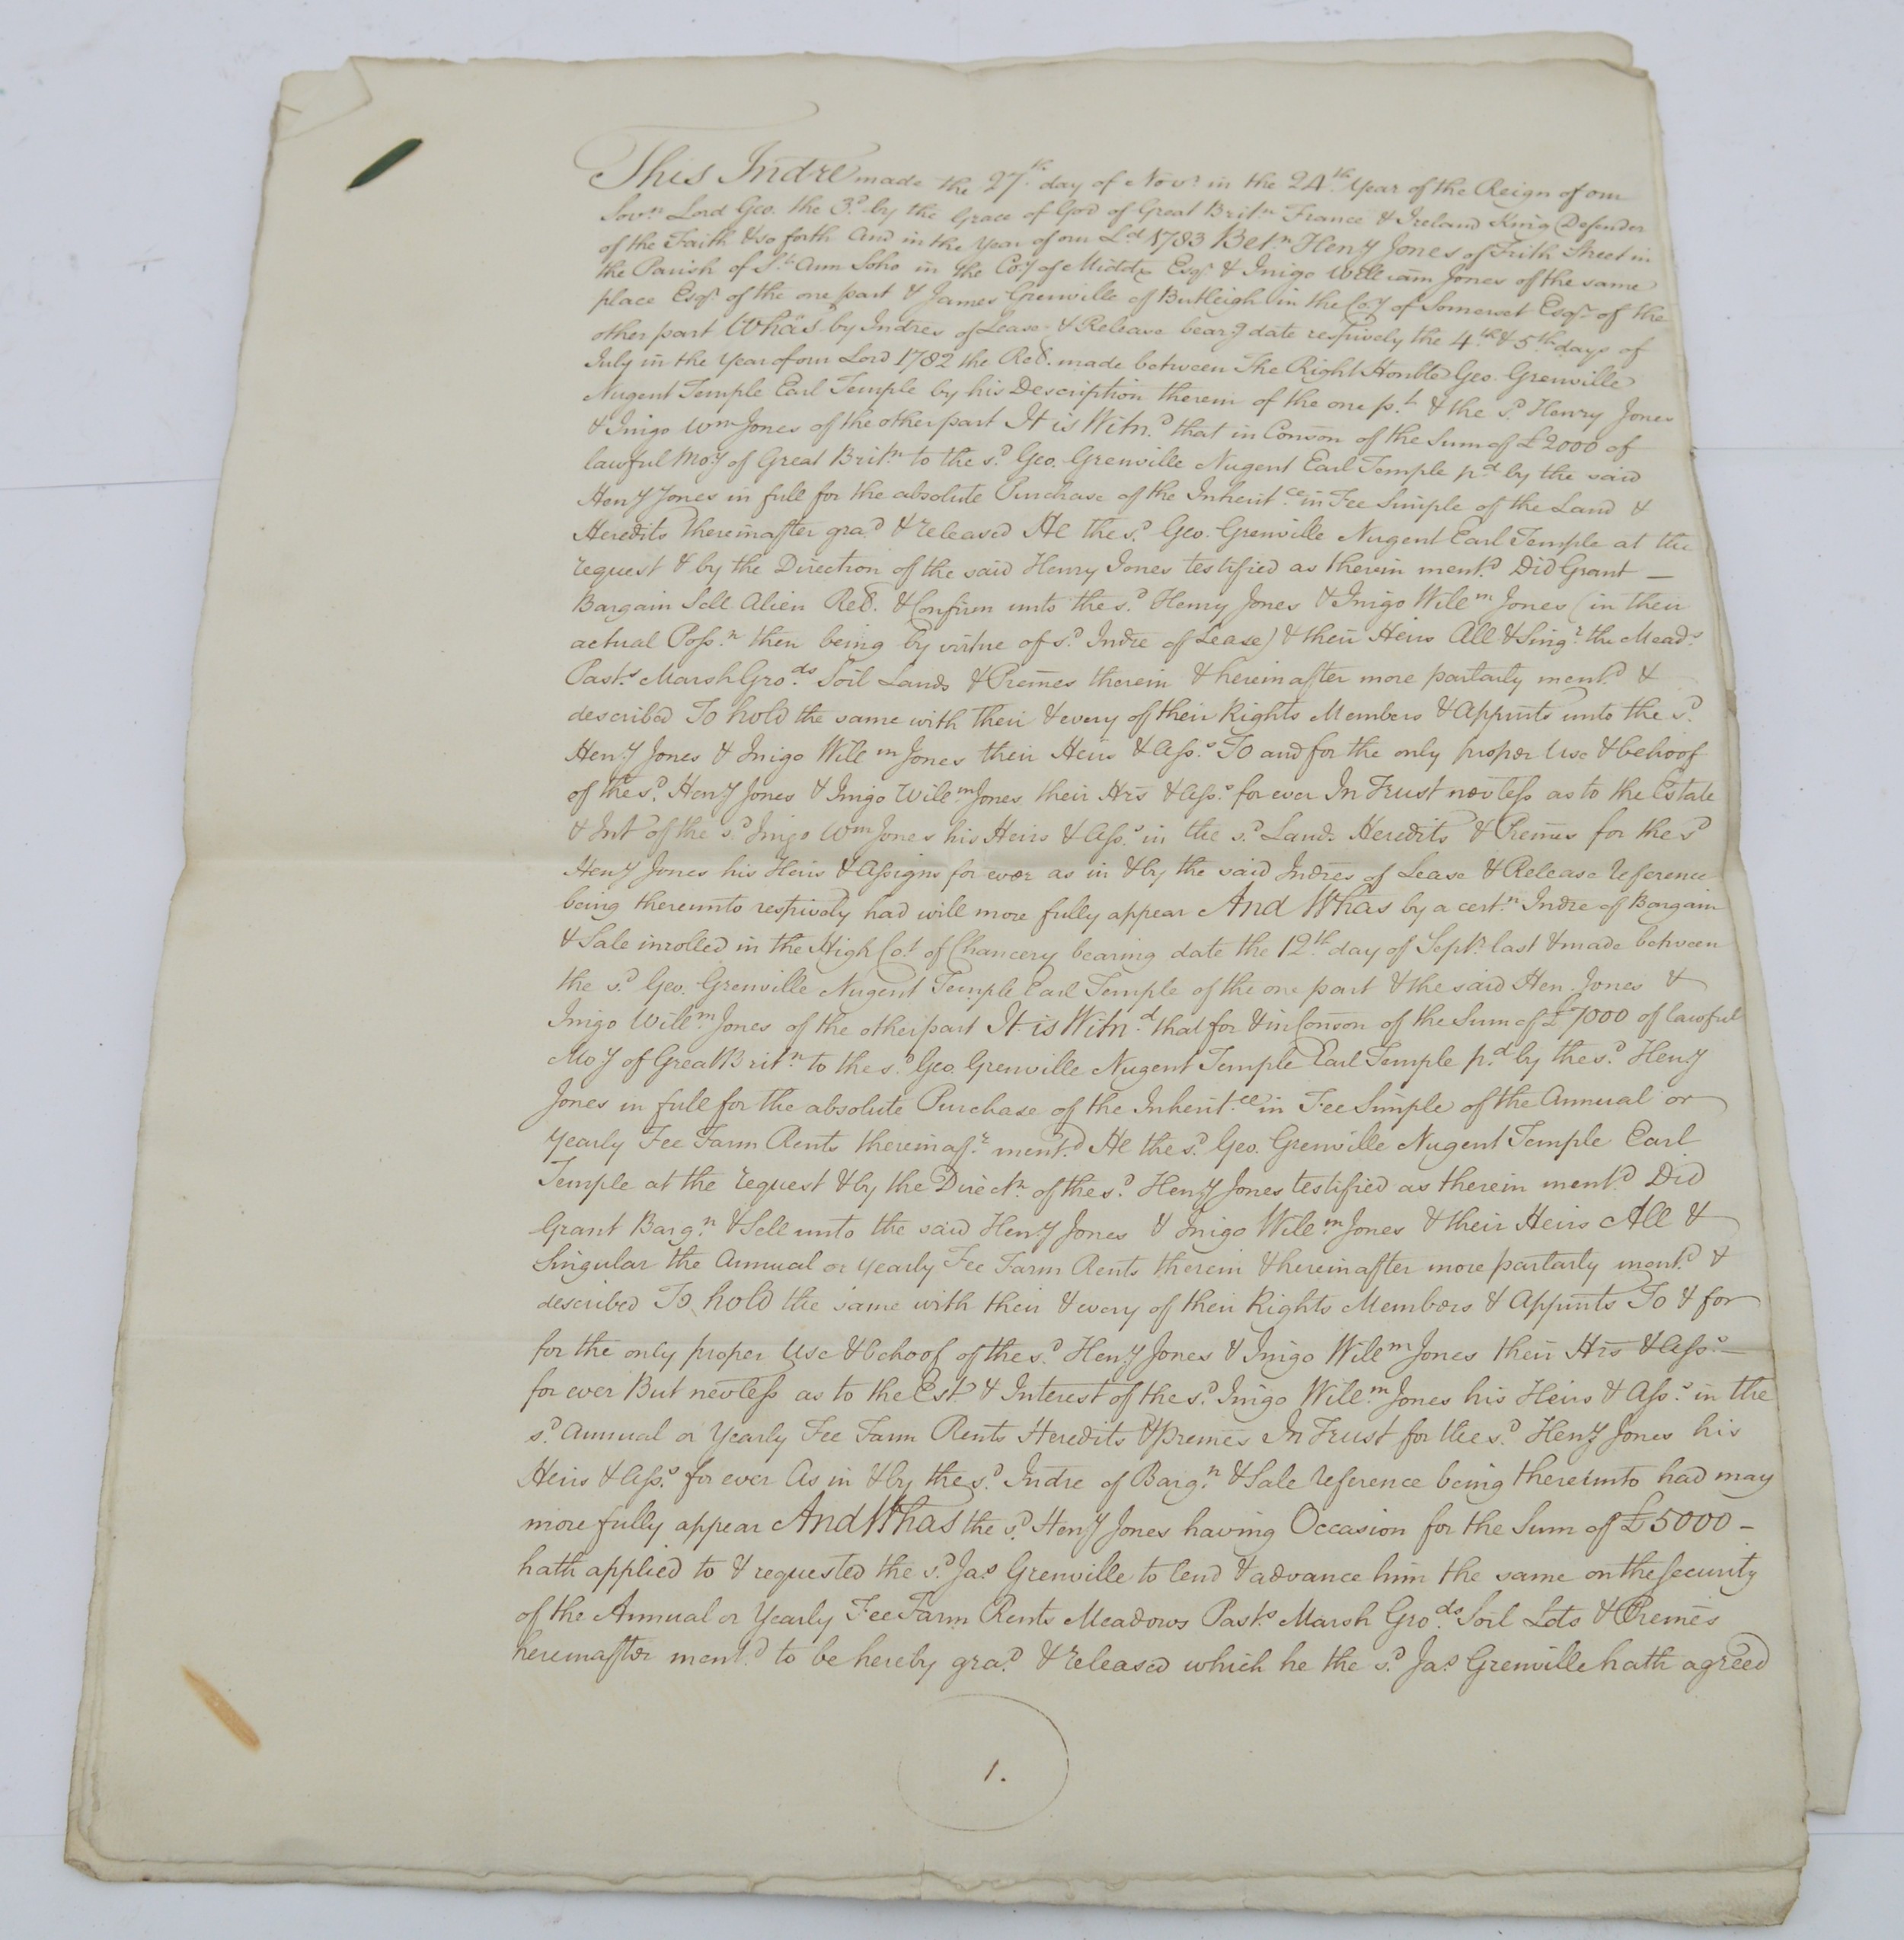 This Indre made the 27th. day of Novr. in the 24th. Year of the Reign of our
Sovn. Lord Geo. the 3d. by the Grace of God of Great Britn. France & Ireland King Defender
of the Faith & so forth And in the Year of our Ld. 1783 Betn. Heny Jones of Frith Street in
the Parish of St. Ann Soho in the Coy of Middx Esqr. & Inigo William Jones of the same
place Esqr. of the one part & James Grenville of Butleigh in the Coy of Somerset Esqr. of the
other part Whas by Indres of Lease & Release bearg date respively the 4th. & 5th. days of
July in the Year of our Lord 1782 the Rel. made between The Right Honble Geo. Grenville
Nugent Temple Earl Temple by his Description therein of the one pt. & the sd. Henry Jones
& Inigo Wm Jones of the other part It is Witnd. that in Conson of the Sum of £2000 of
lawful Moy of Great Britn. to the sd. Geo. Grenville Nugent Earl Temple pd. by the said
Heny Jones in full for the absolute Purchase of the Inheritce. in Fee Simple of the Land &
Heredits thereinafter grad. & released He the sd. Geo. Grenville Nugent Earl Temple at the
request & by the Direction of the said Henry Jones testified as therein mentd. Did Grant —
Bargain Sell Alien Rel. & Confirm unto the sd. Henry Jones & Inigo Willm Jones (in their
actual Possn. then being by virtue of sd. Indre of Lease) & their Heirs All & Singr. the Meads.
Pasts. Marsh Grods. Soil Lands & Premes therein & hereinafter more partarly mentd. &
described To hold the same with their & every of their Rights Members & Appurts unto the sd.
Heny Jones & Inigo Willm Jones their Heirs & Asss. To and for the only proper Use & behoof
of the sd. Heny Jones & Inigo Willm. Jones their Hrs & Asss. for ever In Trust nevless as to the Estate
& Int of the sd. Inigo Wm Jones his Heirs & Asss. in the sd. Lands Heredits & Premes for the sd
Heny Jones his Heirs & Assigns for ever as in & by the said Indres of Lease & Release reference
being thereunto respively had will more fully appear And Whas by a certn. Indre of Bargain
& Sale inrolled in the High Cot. of Chancery bearing date the 12th. day of Septr. last & made between
the sd. Geo. Grenville Nugent Temple Earl Temple of the one part & the said Hen. Jones &
Inigo Willm. Jones of the other part It is Witnd. that for & in Conson of the Sum of £7000 of lawful
Moy of Great Britn. to the sd. Geo. Grenville Nugent Temple Earl Temple pd. by the sd. Heny
Jones in full for the absolute Purchase of the Inheritce. in Fee Simple of the Annual or
Yearly Fee Farm Rents thereinafr. mentd. He the sd. Geo. Grenville Nugent Temple Earl
Temple at the request & by the Directn. of the sd. Heny Jones testified as therein mentd. Did
Grant Bargn. & Sell unto the said Heny Jones & Inigo Willm. Jones & their Heirs All &
Singular the Annual or Yearly Fee Farm Rents therein & hereinafter more partarly mentd. &
described To hold the same with their & every of their Rights Members & Appurts To & for
for the only proper Use & behoof of the sd. Heny Jones & Inigo Willm Jones their Hrs & Asss. —
for ever But nevless as to the Est. & Interest of the sd. Inigo Willm. Jones his Heirs & Asss. in the
sd. Annual or Yearly Fee Farm Rents Heredits & premes In Trust for the sd. Heny Jones his
Heirs & Asss. for ever As in & by the sd. Indre of Bargn. & Sale reference being thereunto had may
more fully appear And Whas the sd. Heny Jones having Occasion for the Sum of £5000 –
hath applied to & requested the sd. Jas Grenville to lend & advance him the same on the Security
of the Annual or Yearly Fee Farm Rents Meadows Pasts Marsh Grods. Soil Lots & Premes
hereinafter mentd. to be hereby grad. & released which he the sd. Jas Grenville hath agreed
1.